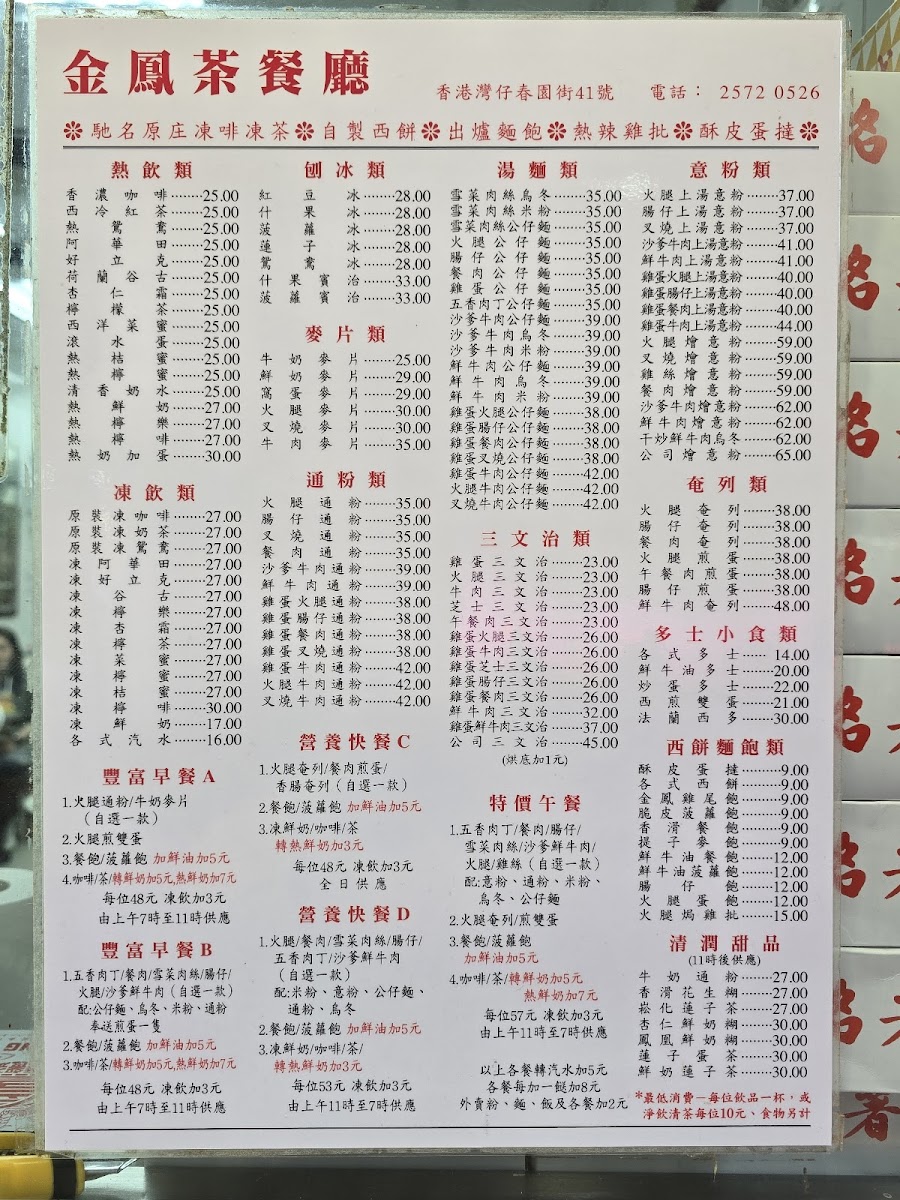 金鳳茶餐廳
香港灣仔春園街41號 電話: 2572 0526
❊馳名原庄凍啡凍茶❊自製西餅❊出爐麵飽❊熱辣雞批❊酥皮蛋撻❊
熱飲類
香濃咖啡⋯⋯25.00
西冷紅茶⋯⋯25.00
熱鴛鴦⋯⋯25.00
阿華田⋯⋯25.00
好立克⋯⋯25.00
荷蘭谷古⋯⋯25.00
杏仁霜⋯⋯25.00
檸檬茶⋯⋯25.00
西洋菜蜜⋯⋯25.00
滾水蛋⋯⋯25.00
熱桔蜜⋯⋯25.00
熱檸蜜⋯⋯25.00
清香奶水⋯⋯25.00
熱鮮奶⋯⋯27.00
熱檸樂⋯⋯27.00
熱檸啡⋯⋯27.00
熱奶加蛋⋯⋯30.00
凍飲類
原裝凍咖啡⋯⋯27.00
原裝凍奶茶⋯⋯27.00
原裝凍鴛鴦⋯⋯27.00
凍阿華田⋯⋯27.00
凍好立克⋯⋯27.00
凍谷古⋯⋯27.00
凍檸樂⋯⋯27.00
凍杏霜⋯⋯27.00
凍檸茶⋯⋯27.00
凍菜蜜⋯⋯27.00
凍檸蜜⋯⋯27.00
凍桔蜜⋯⋯27.00
凍檸啡⋯⋯30.00
凍鮮奶⋯⋯17.00
各式汽水⋯⋯16.00
豐富早餐A
1.火腿通粉/牛奶麥片
（自選一款）
2.火腿煎雙蛋
3.餐飽/菠蘿飽 加鮮油加5元
4.咖啡/茶/轉鮮奶加5元,熱鮮奶加7元
每位48元 凍飲加3元
由上午7時至11時供應
豐富早餐B
1.五香肉丁/餐肉/雪菜肉絲/腸仔/
火腿/沙爹鮮牛肉（自選一款）
配:公仔麵、烏冬、米粉、通粉
奉送煎蛋一隻
2.餐飽/菠蘿飽 加鮮油加5元
3.咖啡/茶/轉鮮奶加5元,熱鮮奶加7元
每位48元 凍飲加3元
由上午7時至11時供應
刨冰類
紅豆冰⋯⋯28.00
什果冰⋯⋯28.00
菠蘿冰⋯⋯28.00
蓮子冰⋯⋯28.00
鴛鴦冰⋯⋯28.00
什果賓治⋯⋯33.00
菠蘿賓治⋯⋯33.00
麥片類
牛奶麥片⋯⋯25.00
鮮奶麥片⋯⋯29.00
窩蛋麥片⋯⋯29.00
火腿麥片⋯⋯30.00
叉燒麥片⋯⋯30.00
牛肉麥片⋯⋯35.00
通粉類
火腿通粉⋯⋯35.00
腸仔通粉⋯⋯35.00
叉燒通粉⋯⋯35.00
餐肉通粉⋯⋯35.00
沙爹牛肉通粉⋯⋯39.00
鮮牛肉通粉⋯⋯39.00
雞蛋火腿通粉⋯⋯38.00
雞蛋腸仔通粉⋯⋯38.00
雞蛋餐肉通粉⋯⋯38.00
雞蛋叉燒通粉⋯⋯38.00
雞蛋牛肉通粉⋯⋯42.00
火腿牛肉通粉⋯⋯42.00
叉燒牛肉通粉⋯⋯42.00
營養快餐C
1.火腿奄列/餐肉煎蛋/
香腸奄列（自選一款）
2.餐飽/菠蘿飽 加鮮油加5元
3.凍鮮奶/咖啡/茶
轉熱鮮奶加3元
每位48元 凍飲加3元
全日供應
營養快餐D
1.火腿/餐肉/雪菜肉絲/腸仔/
五香肉丁/沙爹鮮牛肉
（自選一款）
配:米粉、意粉、公仔麵、
通粉、烏冬
2.餐飽/菠蘿飽 加鮮油加5元
3.凍鮮奶/咖啡/茶/
轉熱鮮奶加3元
每位53元 凍飲加3元
由上午11時至7時供應
湯麵類
雪菜肉絲烏冬⋯⋯35.00
雪菜肉絲米粉⋯⋯35.00
雪菜肉絲公仔麵⋯⋯35.00
火腿公仔麵⋯⋯35.00
腸仔公仔麵⋯⋯35.00
餐肉公仔麵⋯⋯35.00
雞蛋公仔麵⋯⋯35.00
五香肉丁公仔麵⋯⋯35.00
沙爹牛肉公仔麵⋯⋯39.00
沙爹牛肉烏冬⋯⋯39.00
沙爹牛肉米粉⋯⋯39.00
鮮牛肉公仔麵⋯⋯39.00
鮮牛肉烏冬⋯⋯39.00
鮮牛肉米粉⋯⋯39.00
雞蛋火腿公仔麵⋯⋯38.00
雞蛋腸仔公仔麵⋯⋯38.00
雞蛋餐肉公仔麵⋯⋯38.00
雞蛋叉燒公仔麵⋯⋯38.00
雞蛋牛肉公仔麵⋯⋯42.00
火腿牛肉公仔麵⋯⋯42.00
叉燒牛肉公仔麵⋯⋯42.00
三文治類
雞蛋三文治⋯⋯23.00
火腿三文治⋯⋯23.00
牛肉三文治⋯⋯23.00
芝士三文治⋯⋯23.00
午餐肉三文治⋯⋯23.00
雞蛋火腿三文治⋯⋯26.00
雞蛋牛肉三文治⋯⋯26.00
雞蛋芝士三文治⋯⋯26.00
雞蛋腸仔三文治⋯⋯26.00
雞蛋餐肉三文治⋯⋯26.00
鮮牛肉三文治⋯⋯32.00
雞蛋鮮牛肉三文治⋯⋯37.00
公司三文治⋯⋯45.00
(烘底加1元)
特價午餐
1.五香肉丁/餐肉/腸仔/
雪菜肉絲/沙爹鮮牛肉/
火腿/雞絲（自選一款）
配:意粉、通粉、米粉、
烏冬、公仔麵
2.火腿奄列/煎雙蛋
3.餐飽/菠蘿飽
加鮮油加5元
4.咖啡/茶/轉鮮奶加5元
熱鮮奶加7元
每位57元 凍飲加3元
由上午11時至7時供應
以上各餐轉汽水加5元
各餐每加一餸加8元
外賣粉、麵、飯及各餐加2元
意粉類
火腿上湯意粉⋯⋯37.00
腸仔上湯意粉⋯⋯37.00
叉燒上湯意粉⋯⋯37.00
沙爹牛肉上湯意粉⋯⋯41.00
鮮牛肉上湯意粉⋯⋯41.00
雞蛋火腿上湯意粉⋯⋯40.00
雞蛋腸仔上湯意粉⋯⋯40.00
雞蛋餐肉上湯意粉⋯⋯40.00
雞蛋牛肉上湯意粉⋯⋯44.00
火腿燴意粉⋯⋯59.00
叉燒燴意粉⋯⋯59.00
雞絲燴意粉⋯⋯59.00
餐肉燴意粉⋯⋯59.00
沙爹牛肉燴意粉⋯⋯62.00
鮮牛肉燴意粉⋯⋯62.00
干炒鮮牛肉烏冬⋯⋯62.00
公司燴意粉⋯⋯65.00
奄列類
火腿奄列⋯⋯38.00
腸仔奄列⋯⋯38.00
餐肉奄列⋯⋯38.00
火腿煎蛋⋯⋯38.00
午餐肉煎蛋⋯⋯38.00
腸仔煎蛋⋯⋯38.00
鮮牛肉奄列⋯⋯48.00
多士小食類
各式多士⋯⋯14.00
鮮牛油多士⋯⋯20.00
炒蛋多士⋯⋯22.00
西煎雙蛋⋯⋯21.00
法蘭西多⋯⋯30.00
西餅麵飽類
酥皮蛋撻⋯⋯9.00
各式西餅⋯⋯9.00
金鳳雞尾飽⋯⋯9.00
脆皮菠蘿飽⋯⋯9.00
香滑餐飽⋯⋯9.00
提子麥飽⋯⋯9.00
鮮牛油餐飽⋯⋯12.00
鮮牛油菠蘿飽⋯⋯12.00
腸仔飽⋯⋯12.00
火腿蛋飽⋯⋯12.00
火腿焗雞批⋯⋯15.00
清潤甜品
(11時後供應)
牛奶通粉⋯⋯27.00
香滑花生糊⋯⋯27.00
崧化蓮子茶⋯⋯27.00
杏仁鮮奶糊⋯⋯30.00
鳳凰鮮奶糊⋯⋯30.00
蓮子蛋茶⋯⋯30.00
鮮奶蓮子茶⋯⋯30.00
*最低消費－每位飲品一杯，或
淨飲清茶每位10元、食物另計